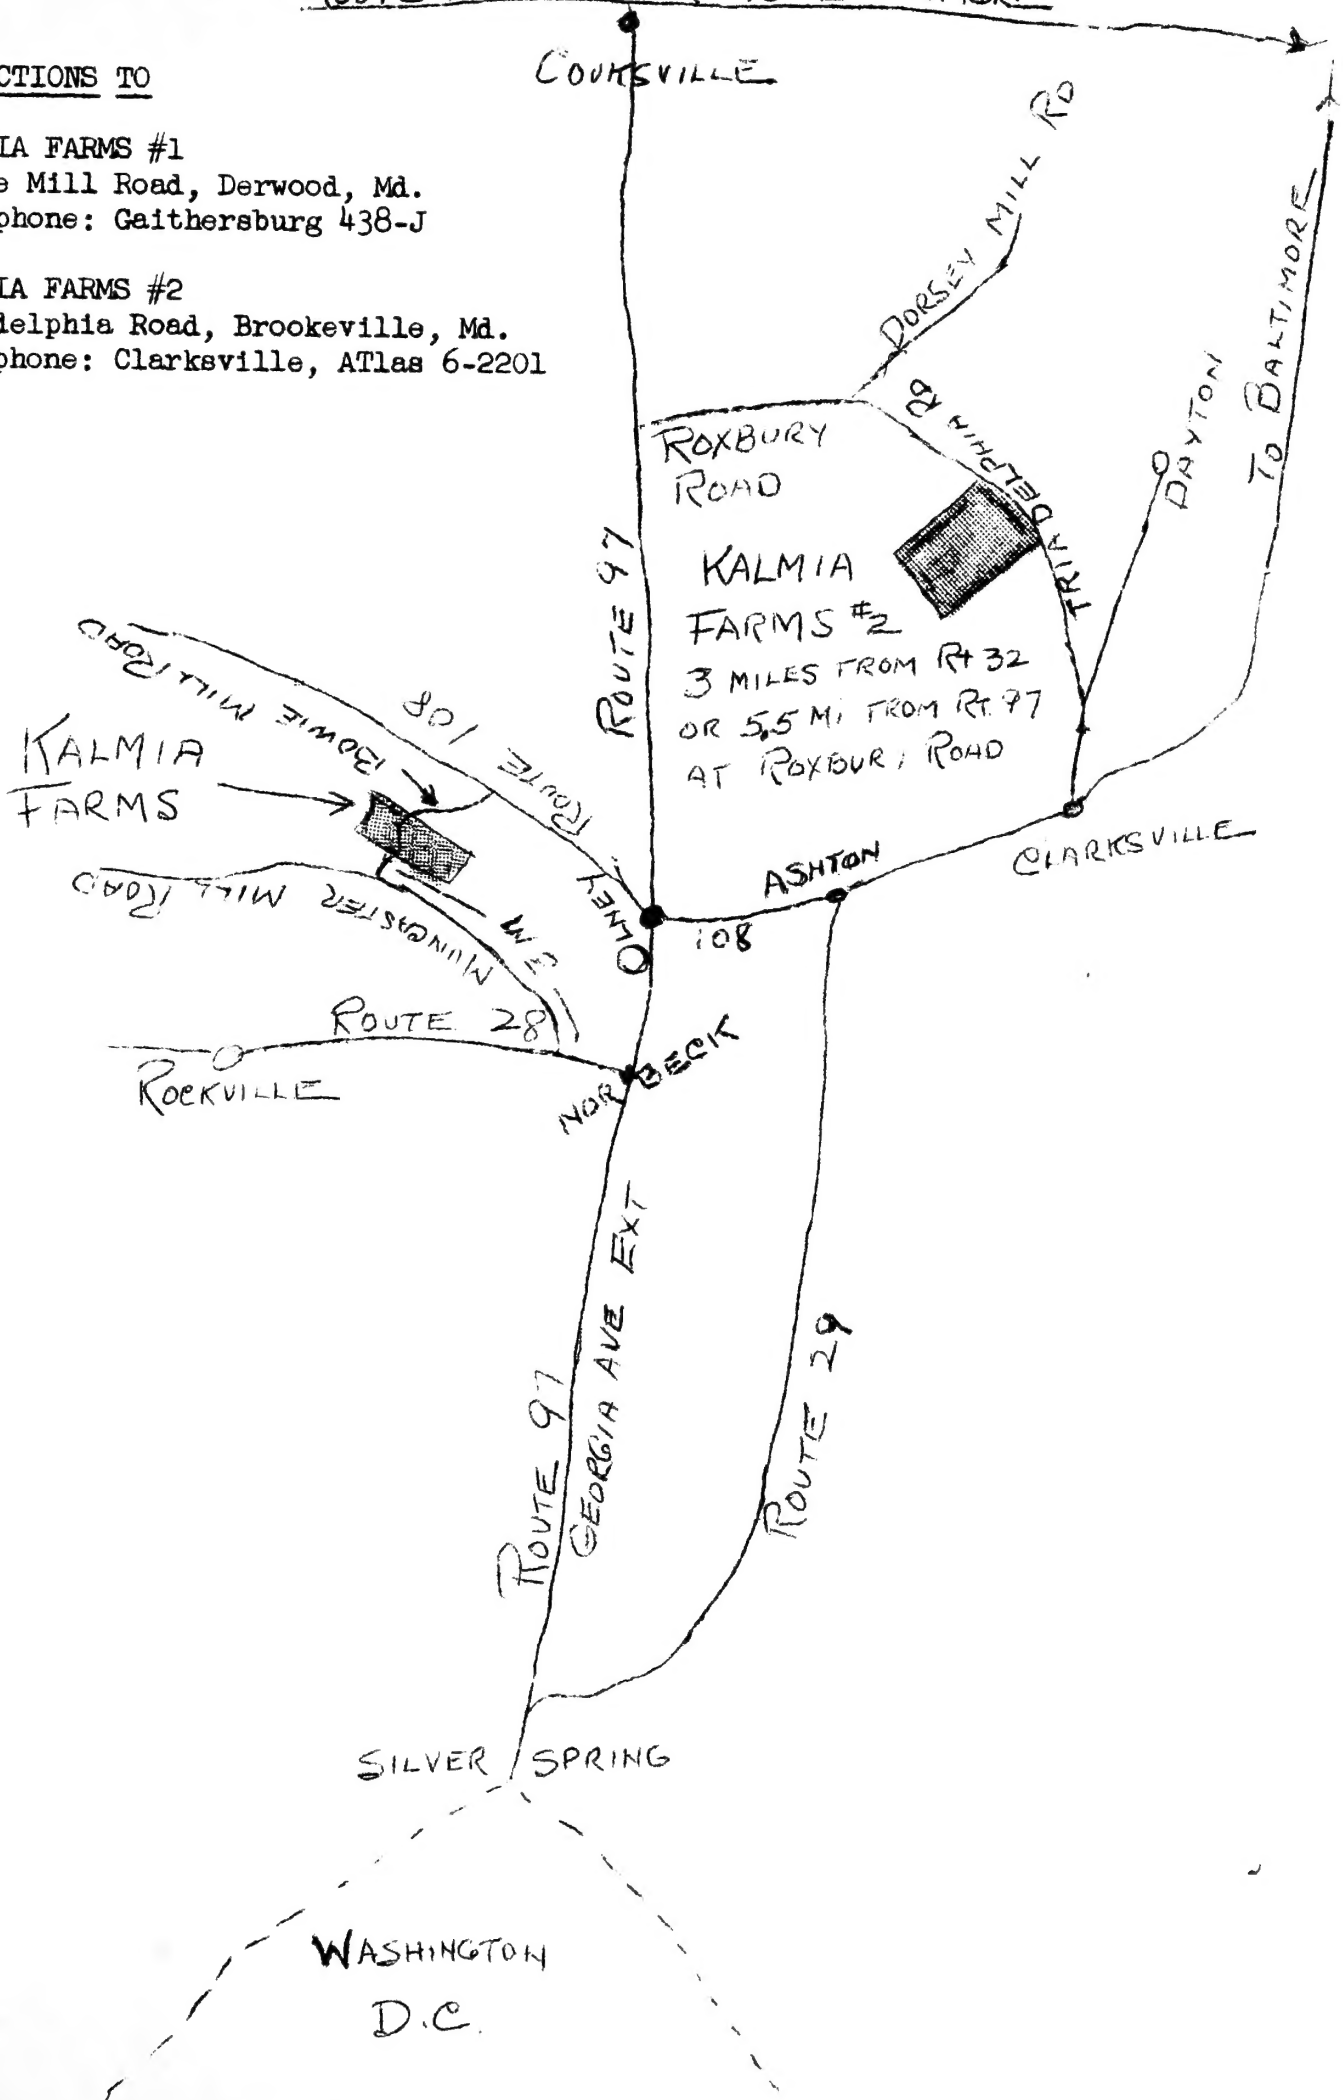 CTIONS TO
IA FARMS #1
e Mill Road, Derwood, Md.
phone: Gaithersburg 438-J
IA FARMS #2
delphia Road, Brookeville, Md.
phone: Clarksville, ATlas 6-2201
COOKSVILLE
DORSEY MILL RD
TO BALTIMORE
DAYTON
TRIADELPHIA RD
ROXBURY
ROAD
ROUTE 97
KALMIA
FARMS #2
3 MILES FROM Rt 32
OR 5.5 Mi FROM RT. 97
AT ROXBURY ROAD
BOWIE MILL ROAD
ROUTE 108
KALMIA
FARMS
MUNCASTER MILL ROAD
3 M
OLNEY
108
ASHTON
CLARKSVILLE
ROUTE 28
ROCKVILLE
NORBECK
ROUTE 97
GEORGIA AVE EXT
ROUTE 29
SILVER SPRING
WASHINGTON
D.C.